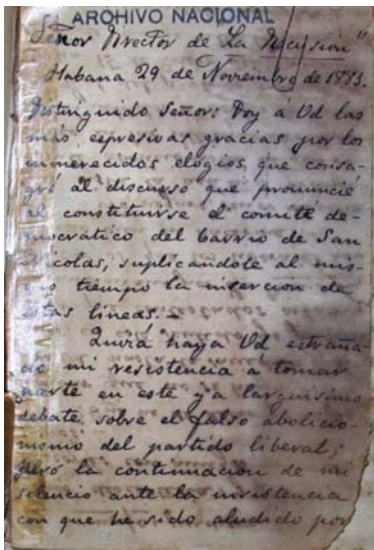 ARCHIVO NACIONAL
Señor Director de "La Discusión"
Habana 29 de Noviembre de 1883.
Distinguido Señor: Doy á Ud las
más espresivas gracias por los
inmerecidos elogios que consa-
gró al discurso que pronuncié
al constituirse el comité de-
mocrático del barrio de San
Nicolas, suplicandole al mis-
mo tiempo la insercion de
estas lineas. —
Quizá haya Ud estraña-
do mi resistencia a tomar
parte en este ya larguisimo
debate sobre el falso abolicio-
nismo del partido liberal;
peró la continuacion de mi
silencio ante la insistencia
con que he sido aludido por